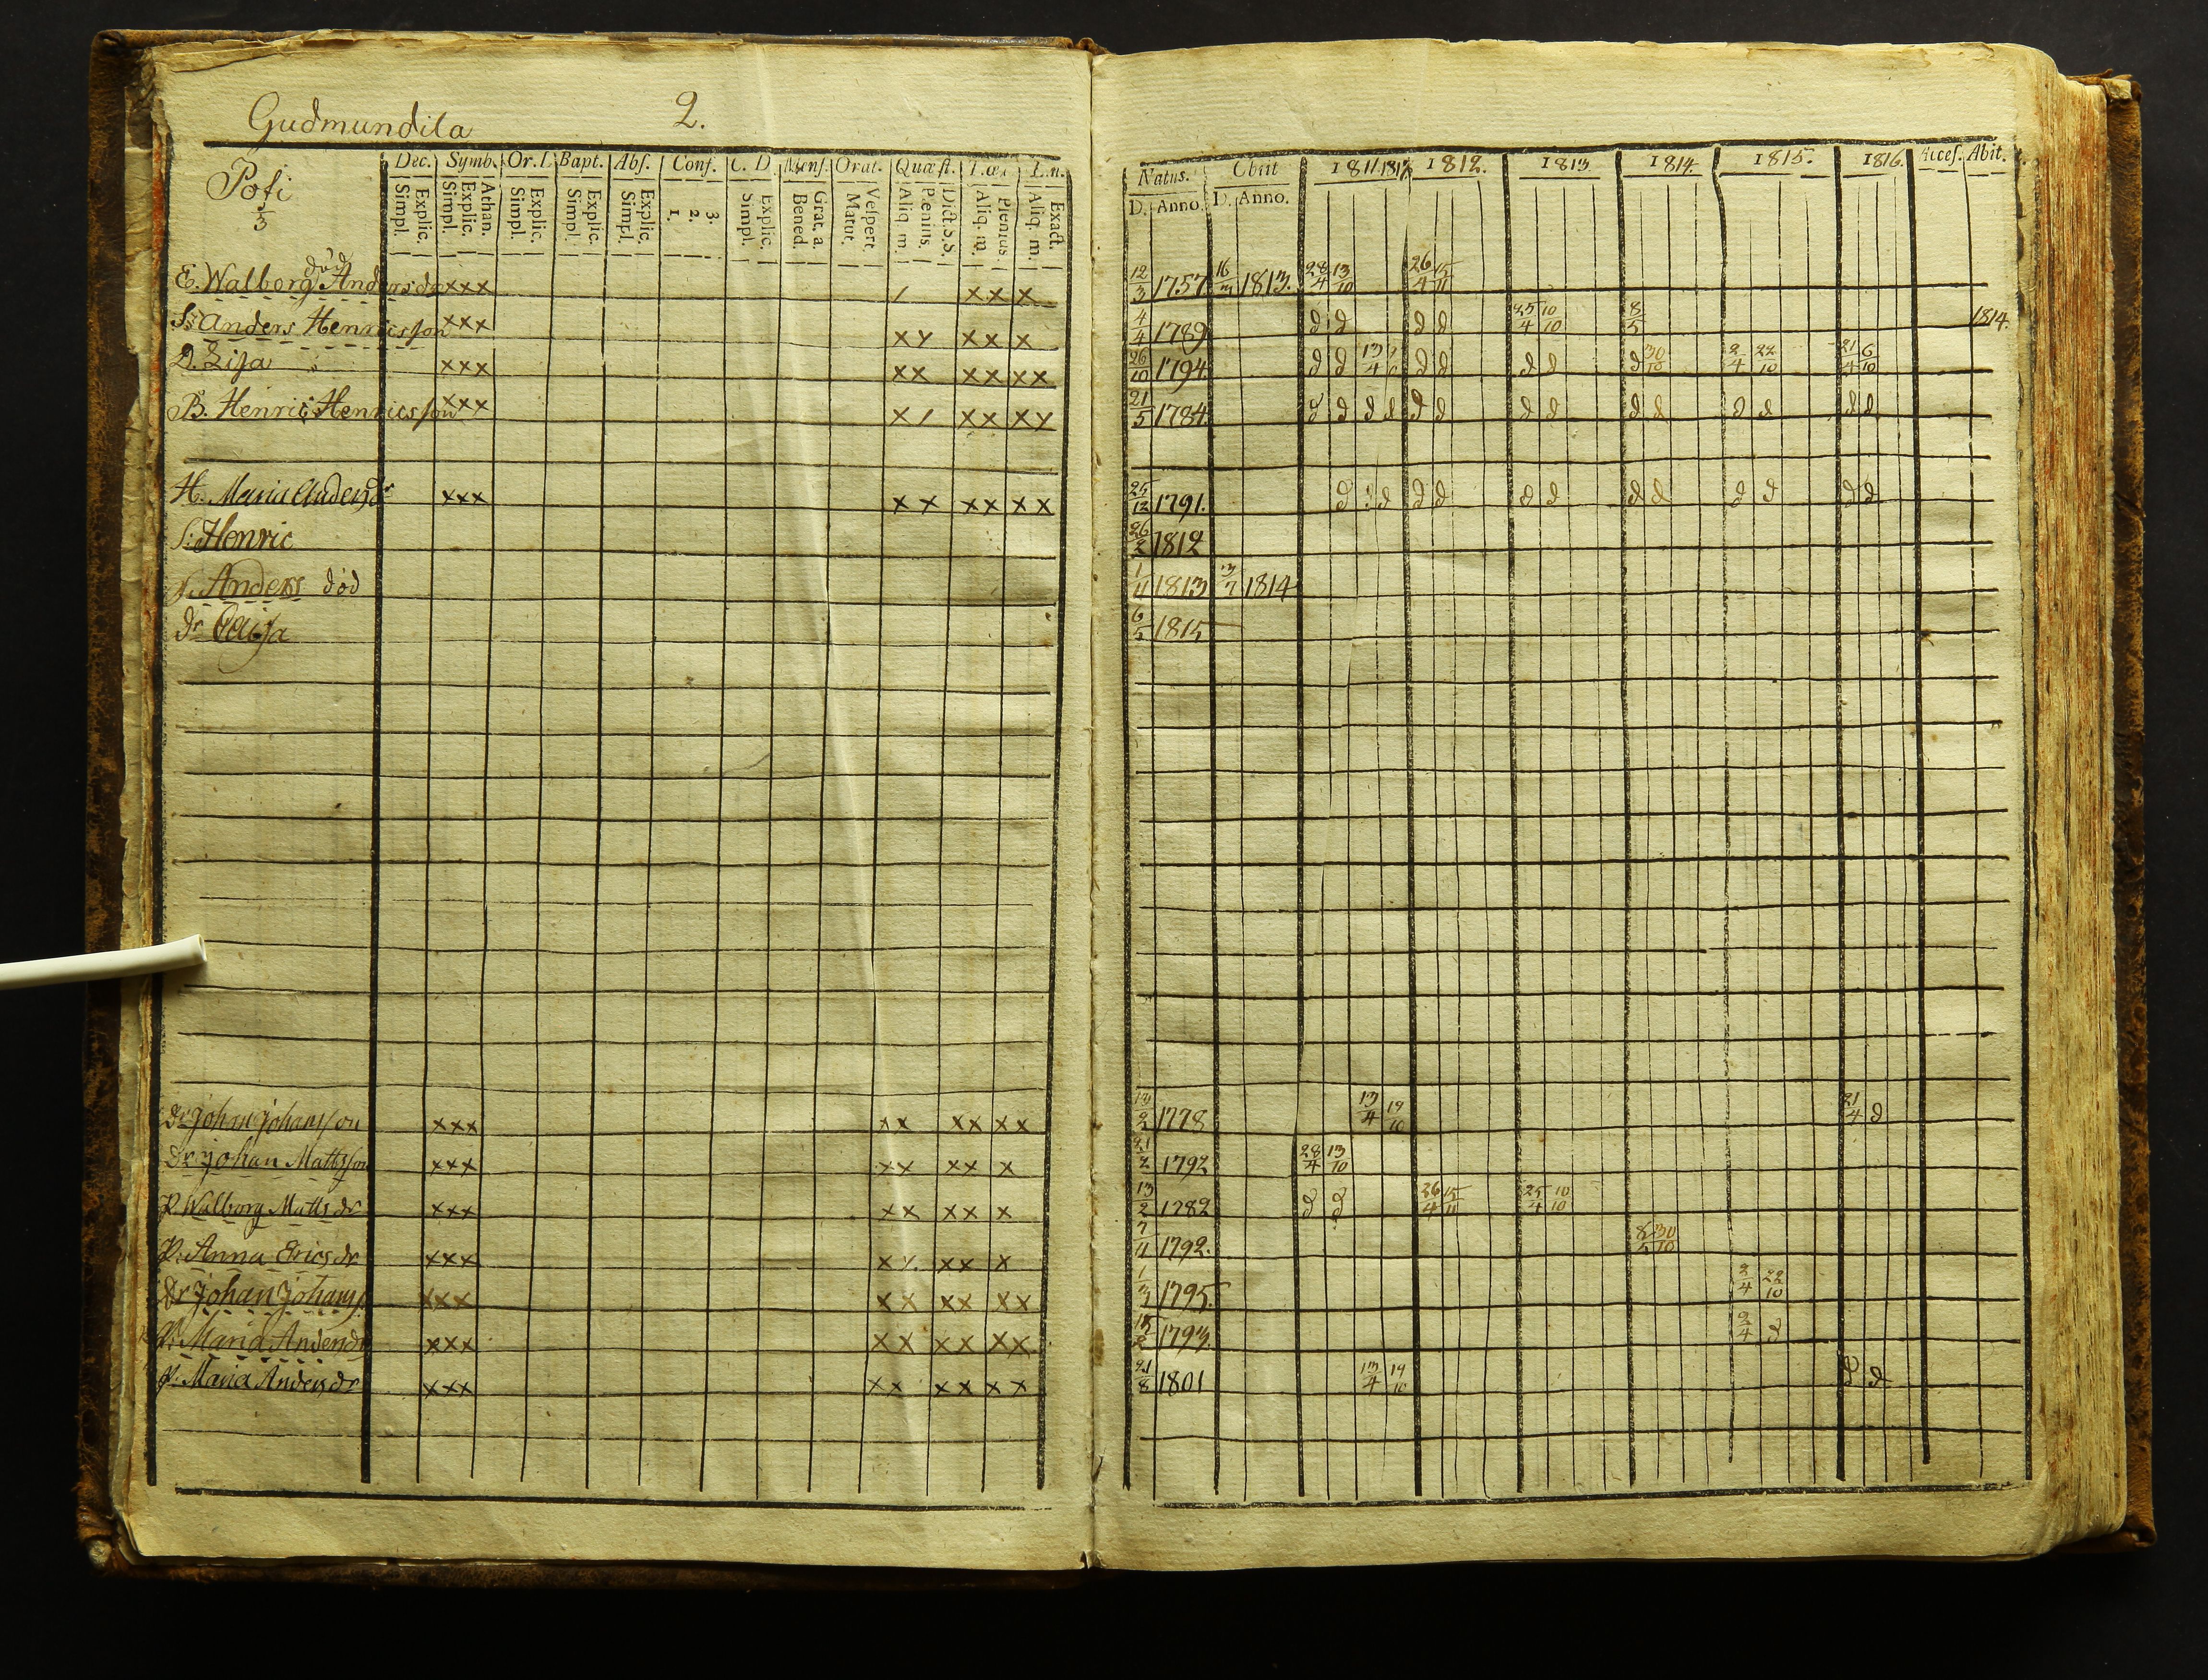 Gudmundila 2.
Posi
1/3
Dec. Symb. Or. D. Bapt. Abs. Conf. C. D. Mens. Orat. Quæst. T. œ. L. n.
Simpl. Explic. Simpl. Explic. Athan. Simpl. Explic. Simpl. Explic. Simpl. Explic. 1. 2. 3. Simpl. Explic. Bened. Grat. a. Matut. Vespert. Aliq. m. Plenius. Dict. S.S. Aliq. m. Plenius. Aliq. m. Exact.
Natus. Obiit 1811 1817 1812. 1813. 1814. 1815. 1816. Acces. Abit.
D. Anno. D. Anno.
död
E. Walborg Andersdr xxx / xx x 12/3 1757 16/3 1813. 28/4 13/10 26/4 15/11
S: Anders Henricsson xxx xy xx x 4/4 1789 d d d d 25/4 10/10 8/5 1814.
D. Lisa xxx xx xx xx 26/10 1794 d d 13/4 d d d d d 30/10 2/4 22/10 21/4 6/10
B. Henric Henricsson xxx x/ xx xy 21/5 1784. d d d d d d d d d d d d d d
H. Maria Andersdr xxx xx xx xx 25/12 1791. d d d d d d d d d d d d
S: Henric 26/2 1812
S. Anders död 1/11 1813 13/7 1814
dr Caisa 6/5 1815
Dr Johan Johansson xxx xx xx xx 13/2 1778 13/4 19/10 21/4 d
Dr Johan Mattsson xxx xx xx x 21/2 1792 28/4 13/10
P. Walborg Matts dr xxx xx xx x 13/2 1782 d d 26/4 15/11 25/4 10/10
P. Anna Ericsdr xxx xy. xx x 7/11 1792. 8/5 30/10
Dr Johan Johans. xxx xx xx xx 1/3 1795. 2/4 22/10
P. Maria Andersdr xxx xx xx xx 15/2 1793. 2/4 d
P. Maria Andersdr xxx xx xx xx 21/8 1801 13/4 19/10 d d